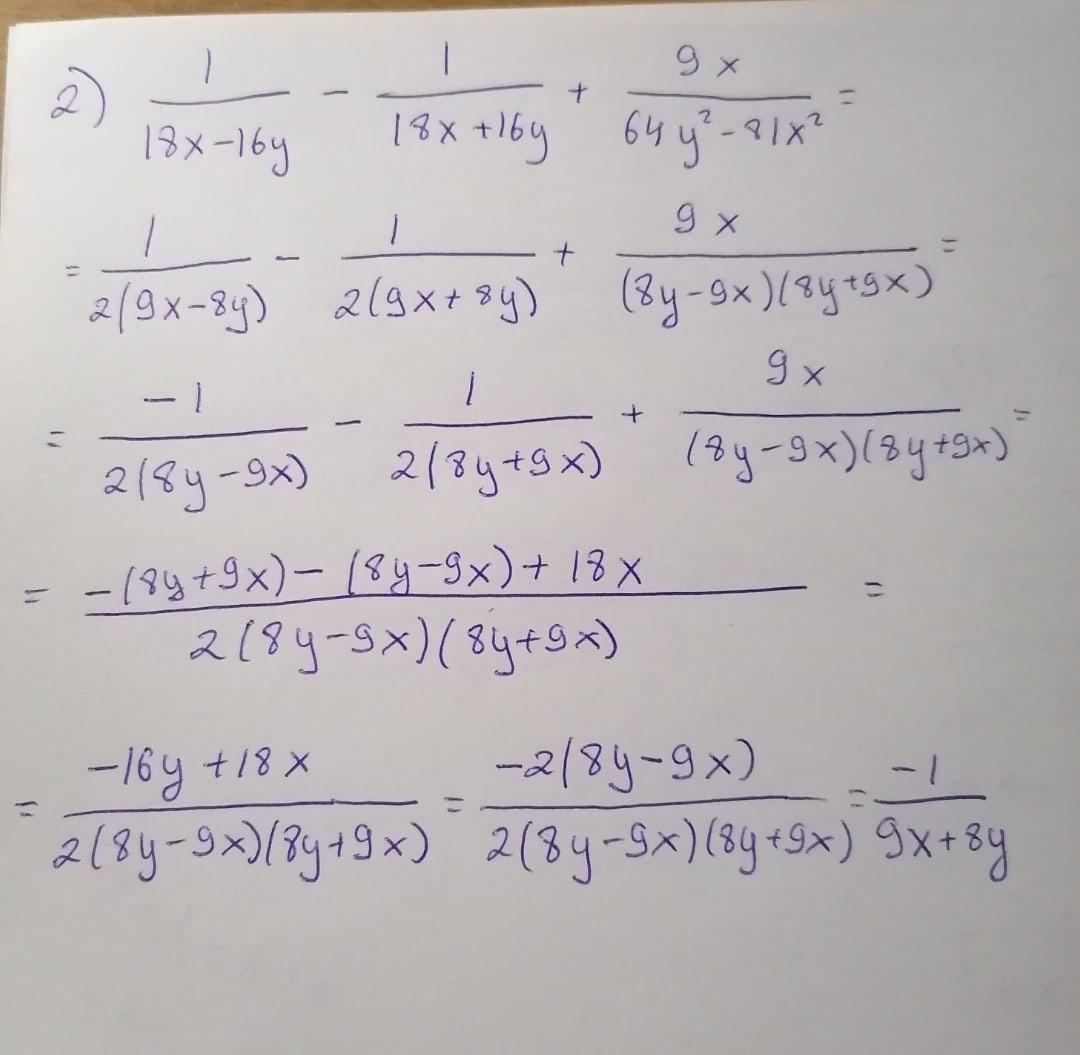 2) 1/(18x-16y) - 1/(18x+16y) + 9x/(64y²-81x²) =
= 1/(2(9x-8y)) - 1/(2(9x+8y)) + 9x/((8y-9x)(8y+9x)) =
= -1/(2(8y-9x)) - 1/(2(8y+9x)) + 9x/((8y-9x)(8y+9x)) =
= (-(8y+9x)-(8y-9x)+18x)/(2(8y-9x)(8y+9x)) =
= (-16y+18x)/(2(8y-9x)(8y+9x)) = (-2(8y-9x))/(2(8y-9x)(8y+9x)) = -1/(9x+8y)